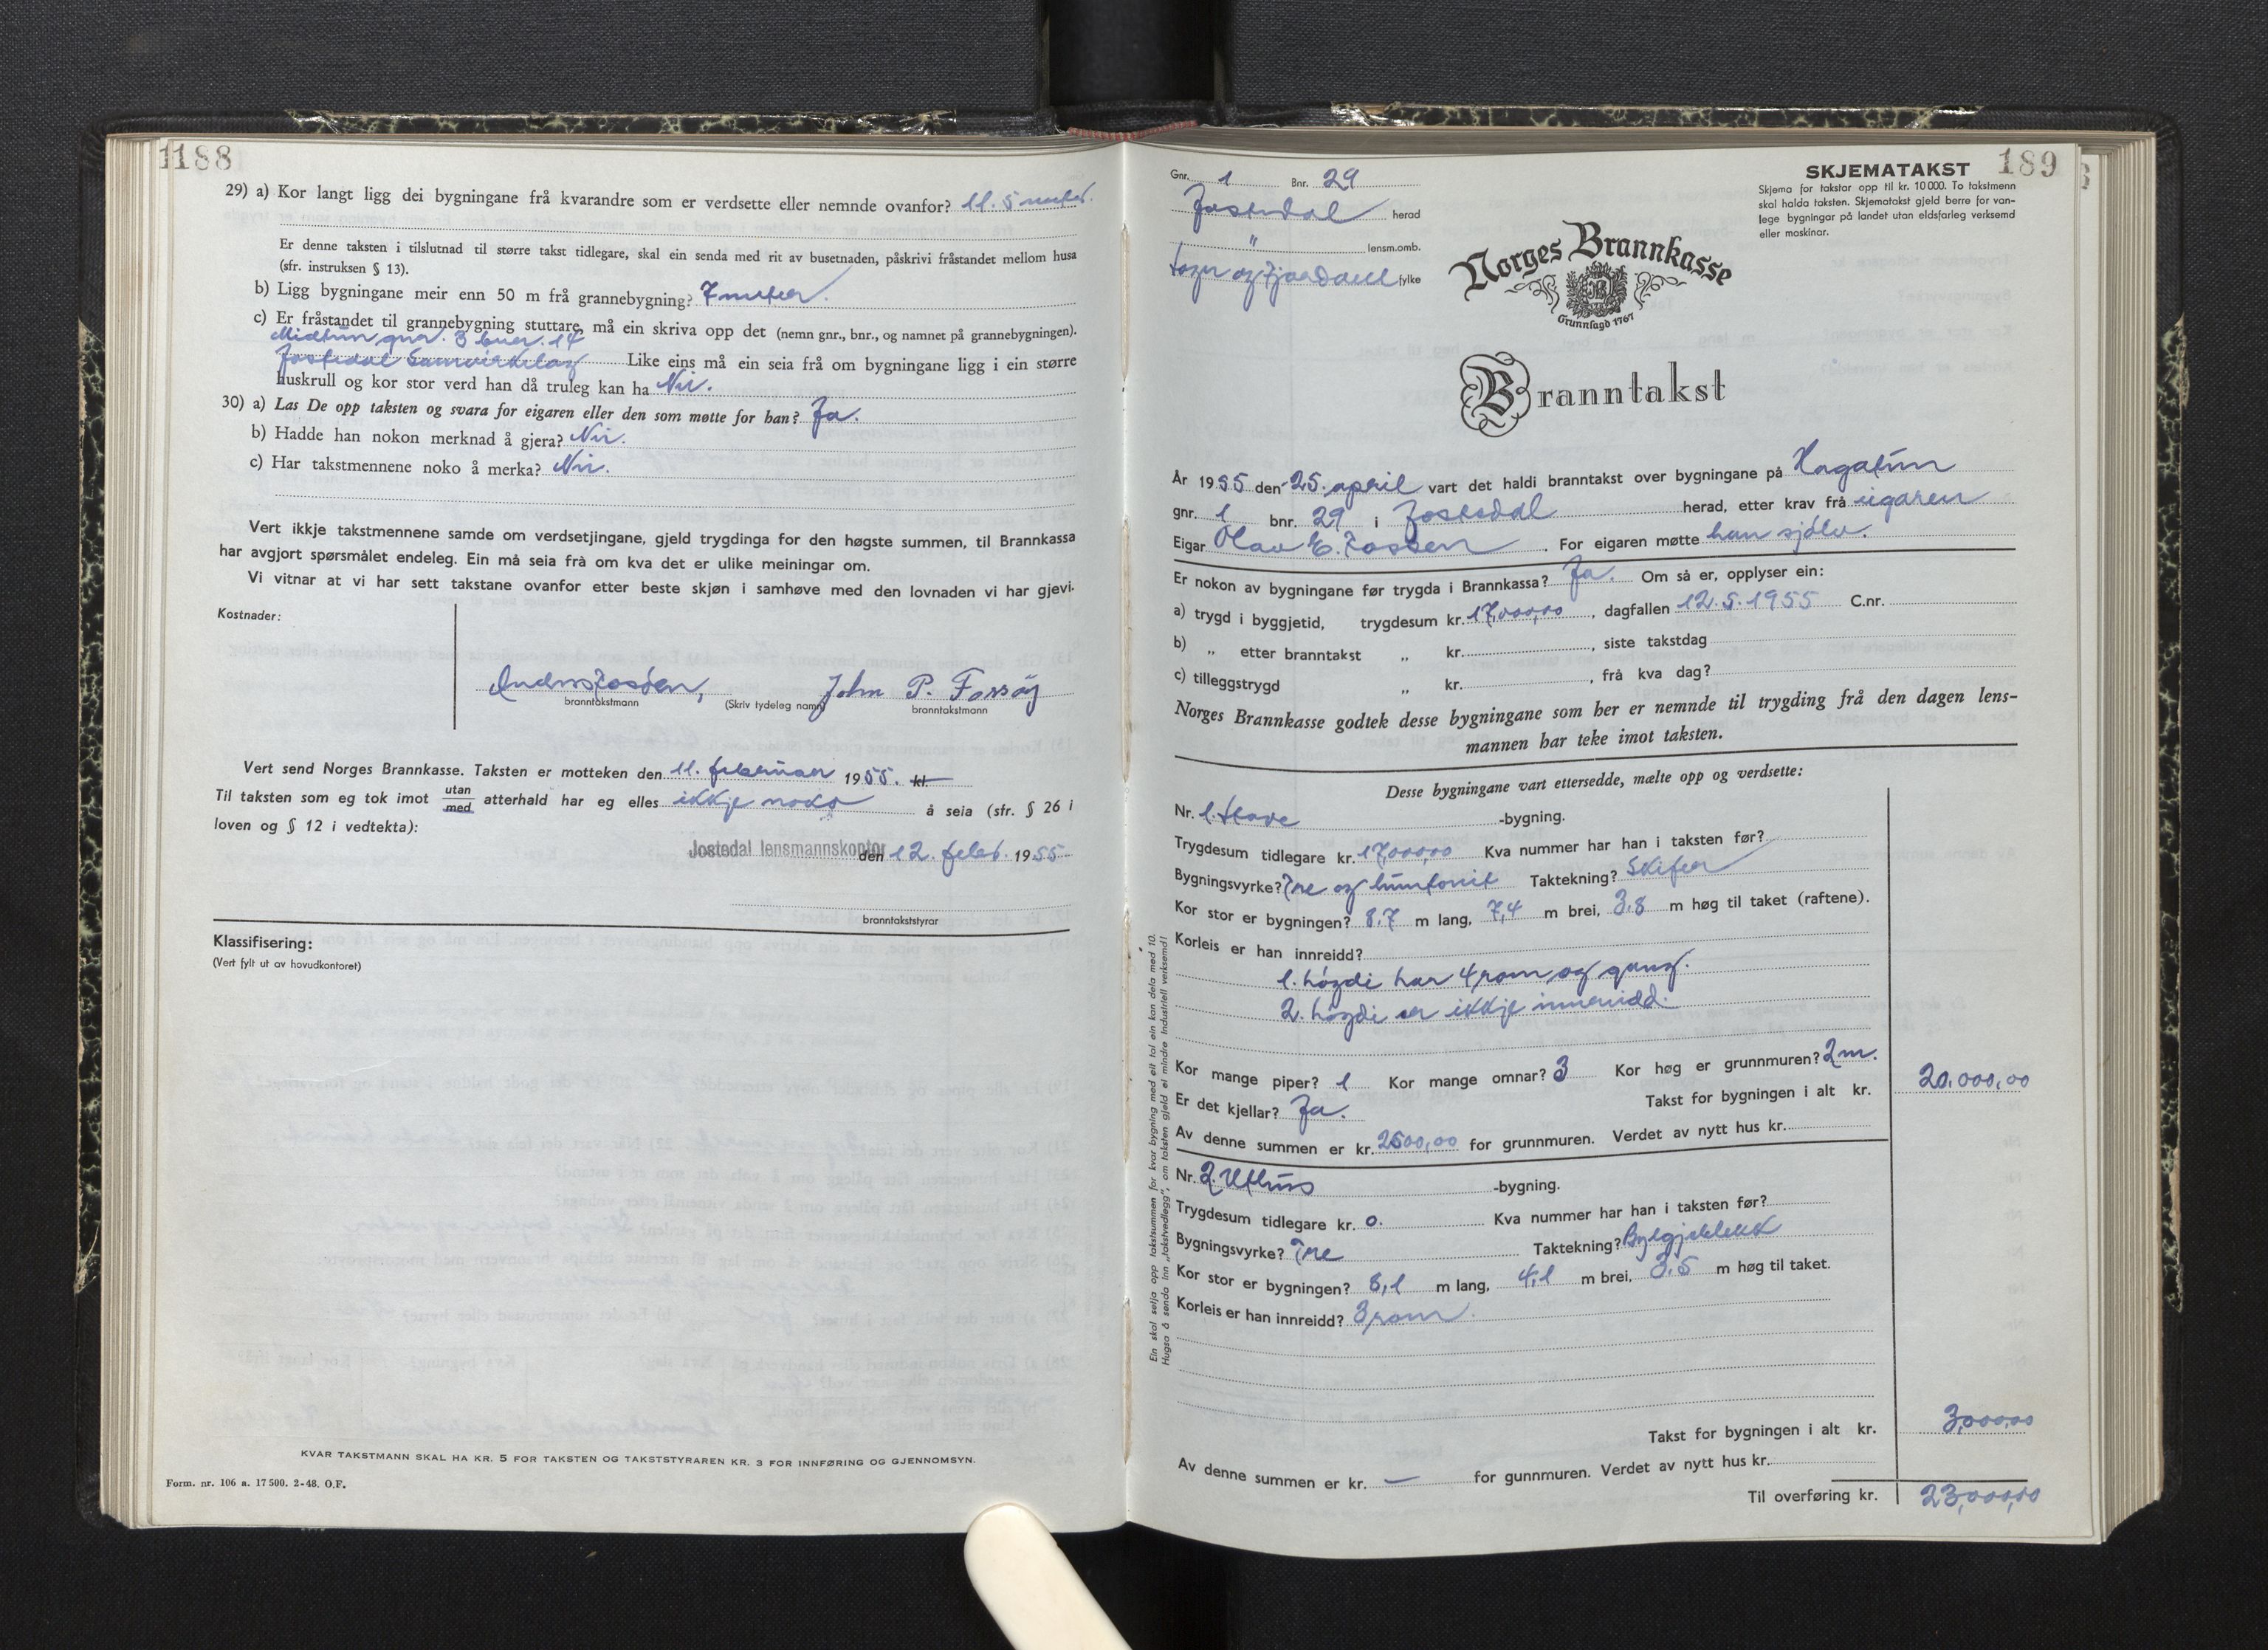 1188
29) a) Kor langt ligg dei bygningane frå kvarandre som er verdsette eller nemnde ovanfor? 11.5 meter.
Er denne taksten i tilslutnad til større takst tidlegare, skal ein senda med rit av busetnaden, påskrivi fråstandet mellom husa
(sfr. instruksen § 13).
b) Ligg bygningane meir enn 50 m frå grannebygning? 7 meter.
c) Er fråstandet til grannebygning stuttare, må ein skriva opp det (nemn gnr., bnr., og namnet på grannebygningen).
Midtun gnr. 3 bnr. 14
Jostedal Samvirkelag Like eins må ein seia frå om bygningane ligg i ein større
huskrull og kor stor verd han då truleg kan ha Nei.
30) a) Las De opp taksten og svara for eigaren eller den som møtte for han? Ja.
b) Hadde han nokon merknad å gjera? Nei.
c) Har takstmennene noko å merka? Nei.
Vert ikkje takstmennene samde om verdsetjingane, gjeld trygdinga for den høgste summen, til Brannkassa
har avgjort spørsmålet endeleg. Ein må seia frå om kva det er ulike meiningar om.
Vi vitnar at vi har sett takstane ovanfor etter beste skjøn i samhøve med den lovnaden vi har gjevi.
Kostnader:
John P. Fossøy
branntakstmann (Skriv tydeleg namn) branntakstmann
Vert send Norges Brannkasse. Taksten er motteken den 11. februar 1955. kl.
Til taksten som eg tok imot utan/med atterhald har eg elles ikkje noko å seia (sfr. § 26 i
loven og § 12 i vedtekta):
Jostedal lensmannskontor den 12. febr. 1955
branntakststyrar
Klassifisering:
(Vert fylt ut av hovudkontoret)
KVAR TAKSTMANN SKAL HA KR. 5 FOR TAKSTEN OG TAKSTSTYRAREN KR. 3 FOR INNFØRING OG GJENNOMSYN.
Form. nr. 106 a. 17 500. 2-48. O.F.
189
SKJEMATAKST
Skjema for takstar opp til kr. 10 000. To takstmenn
skal halda taksten. Skjematakst gjeld berre for van-
lege bygningar på landet utan eldsfarleg verksemd
eller maskinar.
Gnr. 1 Bnr. 29
Jostedal herad
" lensm.omb.
Sogn og Fjordane fylke
Norges Brannkasse
Grunnlagd 1767
Branntakst
År 1955 den 25. april vart det haldi branntakst over bygningane på Hagatun
gnr. 1 bnr. 29 i Jostedal herad, etter krav frå eigaren
Eigar Olav E. Fossen. For eigaren møtte han sjølv.
Er nokon av bygningane før trygda i Brannkassa? Ja. Om så er, opplyser ein:
a) trygd i byggjetid, trygdesum kr. 17,000,00, dagfallen 12.5.1955 C.nr.
b) „ etter branntakst „ kr. , siste takstdag
c) tilleggstrygd „ kr. , frå kva dag?
Norges Brannkasse godtek desse bygningane som her er nemnde til trygding frå den dagen lens-
mannen har teke imot taksten.
Desse bygningane vart ettersedde, mælte opp og verdsette:
Nr. 1. Stove -bygning.
Trygdesum tidlegare kr. 17,000,00 Kva nummer har han i taksten før?
Bygningsvyrke? Tre og Taktekning? Skifer
Kor stor er bygningen? 8.7 m lang, 7,4 m brei, 3.8 m høg til taket (raftene).
Korleis er han innreidd?
1. høgdi har 4 rom og gang.
2. høgdi er ikkje innreidd.
Kor mange piper? 1 Kor mange omnar? 3 Kor høg er grunnmuren? 2 m.
Er det kjellar? Ja. Takst for bygningen i alt kr. 20.000,00
Av denne summen er kr. 2500,00 for grunnmuren. Verdet av nytt hus kr.
Nr. 2. Uthus -bygning.
Trygdesum tidlegare kr. 0. Kva nummer har han i taksten før?
Bygningsvyrke? Tre Taktekning? Bylgjeblekk
Kor stor er bygningen? 8,1 m lang, 4,1 m brei, 3.5 m høg til taket.
Korleis er han innreidd? 3 rom.
Takst for bygningen i alt kr. 3,000,00
Av denne summen er kr. — for gunnmuren. Verdet av nytt hus kr.
Til overføring kr. 23,000,00
Ein skal setja opp takstsummen for kvar bygning med eit tal ein kan dela med 10.
Hugsa å senda inn „takstvedlegg", om taksten gjeld ei mindre industriell verksemd!